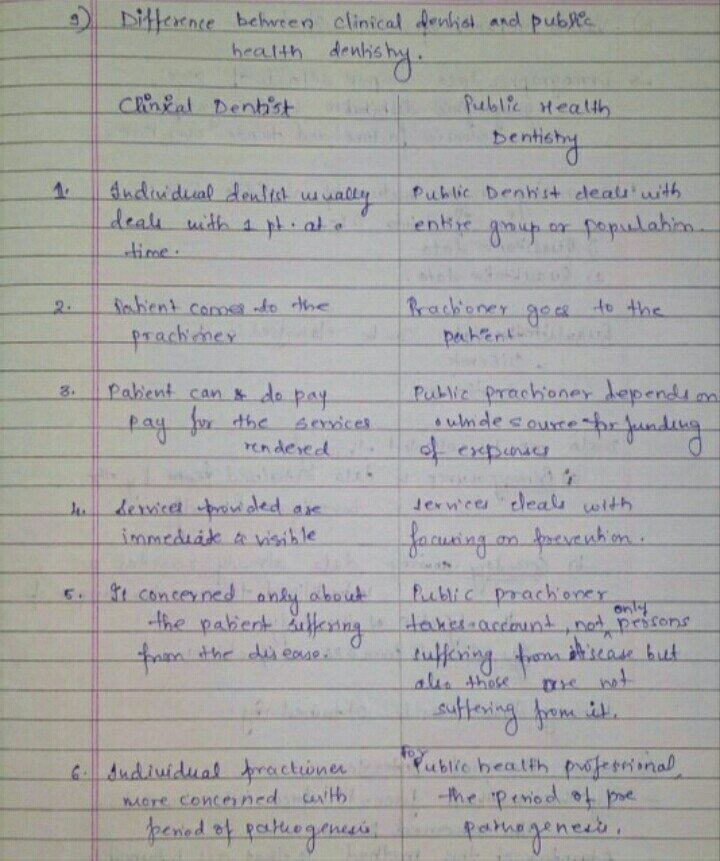 9) Difference between clinical dentist and public
health dentistry.
Clinical Dentist Public Health
Dentistry
1. Individual dentist usually Public Dentist deals with
deals with 1 pt. at a entire group or population.
time.
2. Patient comes to the Practioner goes to the
practioner patient
3. Patient can & do pay Public practioner depends on
pay for the services outside source for funding
rendered of expenses
4. Services provided are services deals with
immediate & visible focusing on prevention.
5. It concerned only about Public practioner
the patient suffering takes account, not only persons
from the disease. suffering from disease but
also those are not
suffering from it.
6. Individual practioner for Public health professional,
more concerned with the period of pre
period of pathogenesis. pathogenesis.